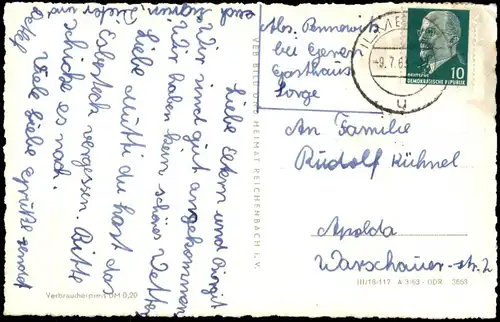 Liebe Eltern und Birgit
Wir sind gut angekommen
Wir haben kein schönes Wetter
Liebe Mutti du hast das
Esbesteck vergessen. Bitte
schicke es nach.
Viele liebe Grüße sendet
euch Karin, Dieter und
Detlef
VEB BILD UND HEIMAT REICHENBACH I. V.
Verbraucherpreis DM 0,20
Abs. Pennewitz
bei Exner
Gasthaus
Sorge
-9.7.63
10
DEUTSCHE
DEMOKRATISCHE REPUBLIK
An Familie
Rudolf Kühnel
Apolda
Warschauer-str. 2
III/18-117 A 3/63 - DDR 3663